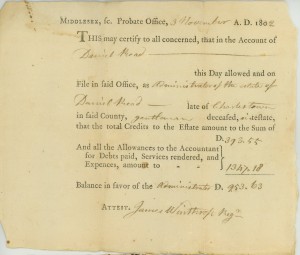 MIDDLESEX, ſc. Probate Office, 3 November A. D. 1802
THIS may certify to all concerned, that in the Account of
Daniel Reed
this Day allowed and on
File in said Office, as Administrator of the estate of
Daniel Reed late of Charlestown
in said County, gentleman deceased, intestate,
that the total Credits to the Estate amount to the Sum of
D. 393.55
And all the Allowances to the Accountant
for Debts paid, Services rendered, and
Expences, amount to 1347.18
Balance in favor of the Administrator D. 953.63
ATTEST. James Winthrop Regr